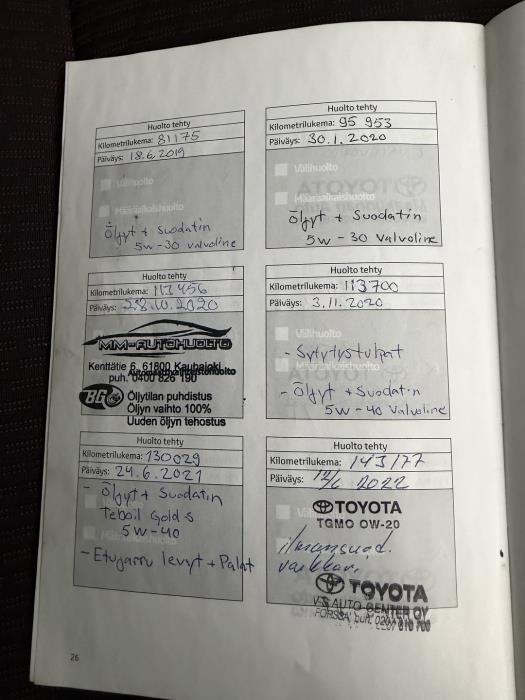 Huolto tehty
Kilometrilukema: 81175
Päiväys: 18.6.2019
Välihuolto
Määräaikaishuolto
Öljyt + Suodatin
5w-30 Valvoline
Huolto tehty
Kilometrilukema: 95 953
Päiväys: 30.1.2020
Välihuolto
Määräaikaishuolto
Öljyt + Suodatin
5w-30 Valvoline
Huolto tehty
Kilometrilukema: 113456
Päiväys: 28.10.2020
MM-AUTOHUOLTO
Kenttätie 6, 61800 Kauhajoki
puh. 0400 826 190
BG
Öljytilan puhdistus
Öljyn vaihto 100%
Uuden öljyn tehostus
Huolto tehty
Kilometrilukema: 113700
Päiväys: 3.11.2020
Välihuolto
- Sytytystulpat
- Öljyt + Suodatin
5w-40 Valvoline
Huolto tehty
Kilometrilukema: 130029
Päiväys: 24.6.2021
- Öljyt + Suodatin
Teboil Gold S
5w-40
- Etujarru levyt + Palat
Huolto tehty
Kilometrilukema: 143177
Päiväys: 2022
TOYOTA
TGMO OW-20
ilmansuod.
vaihdettu
TOYOTA
V-S AUTO CENTER OY
FORSSA puh.
26